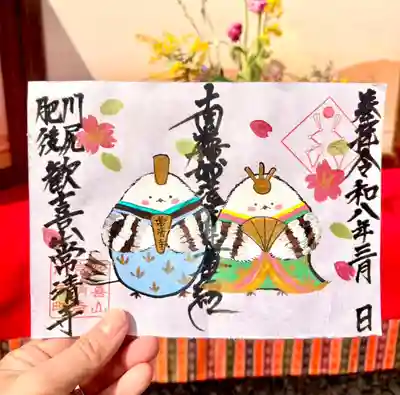 奉拝 令和八年三月 日
南無妙法蓮華経
常清寺
川尻
肥後
歓喜山常清寺